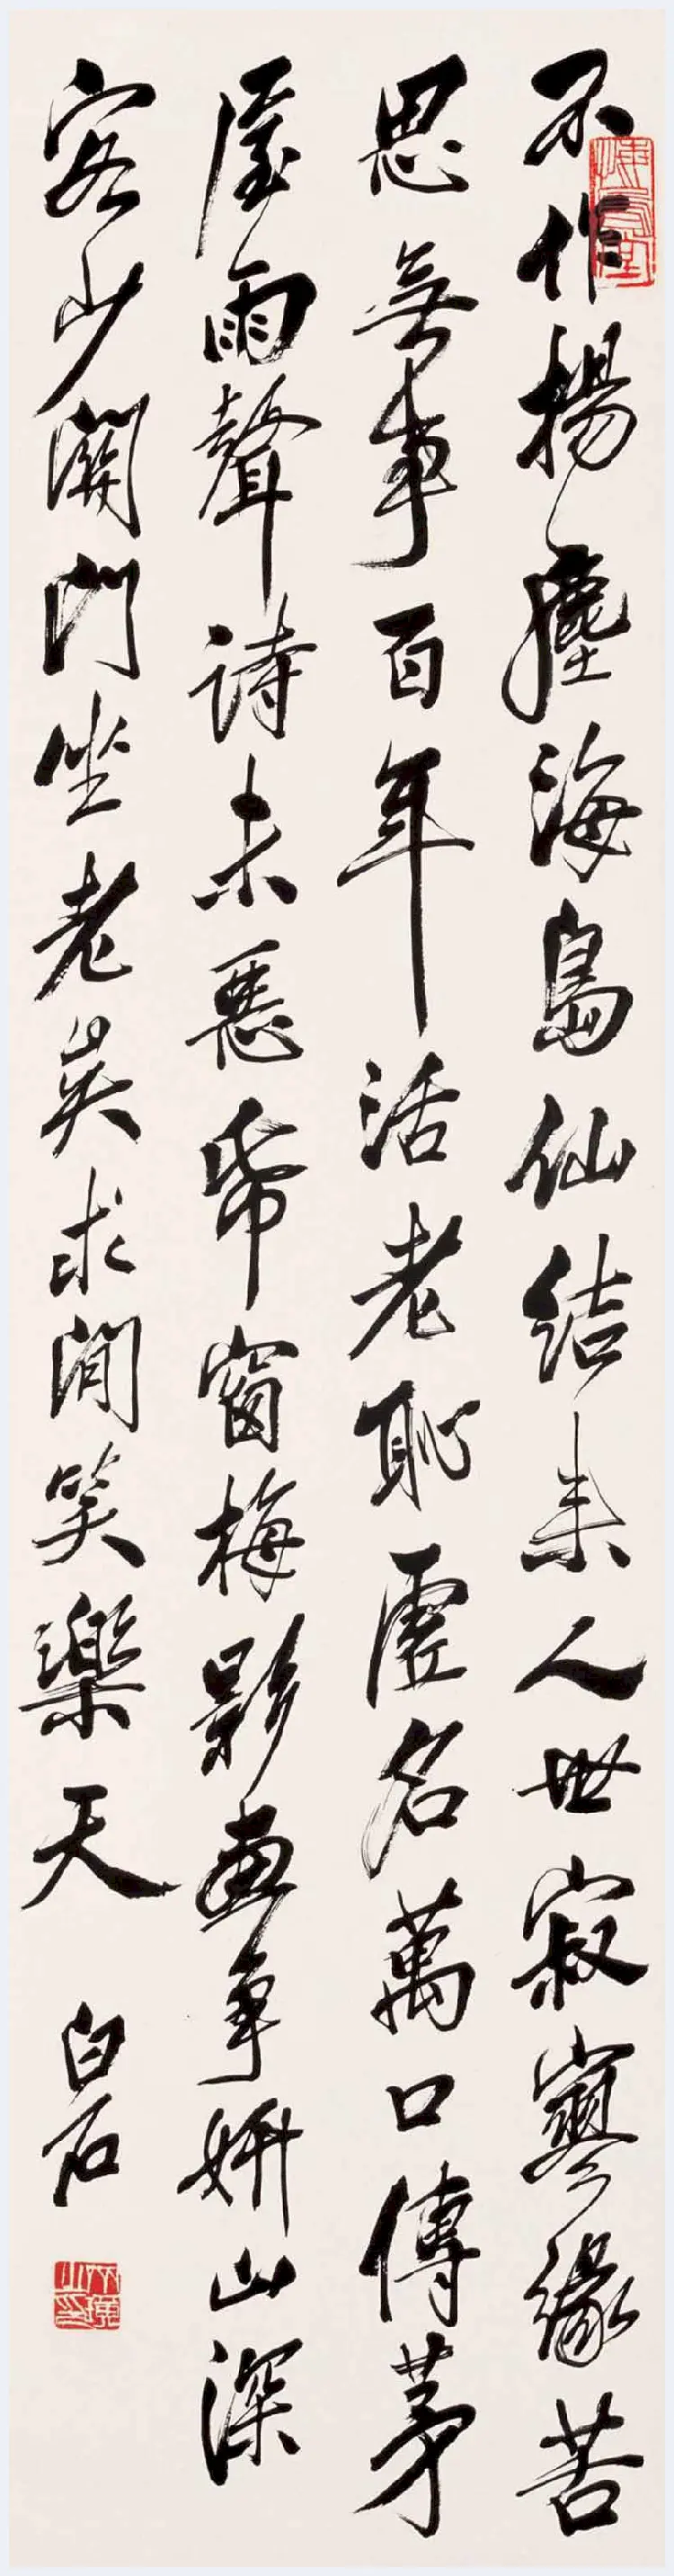 悔烏堂
不作揚塵海島仙結來人世寂寥緣苦
思無事百年活老恥虛名萬口傳茅
屋雨聲詩未惡帋窗梅影畫爭妍山深
客少關門坐老矣求閒笑樂天 白石